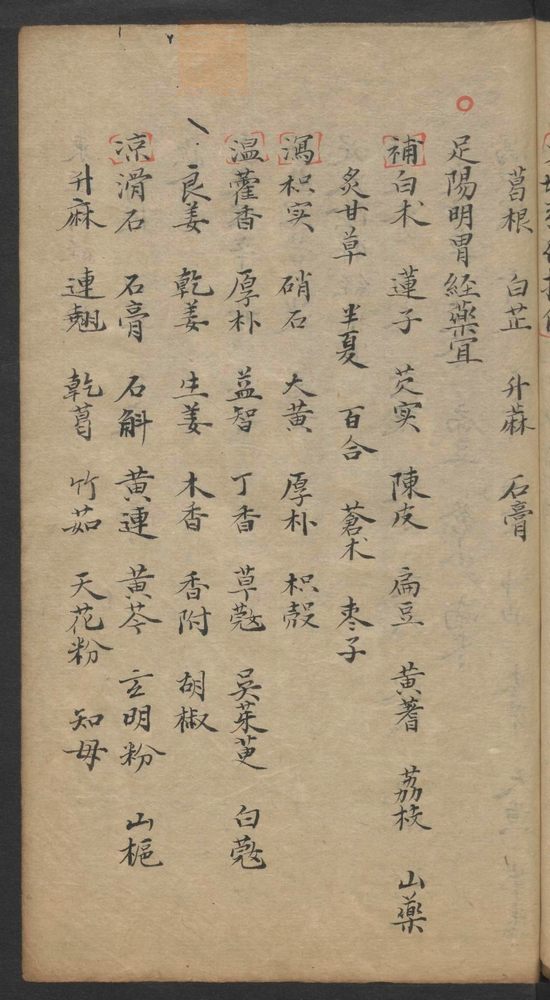 葛根 白芷 升蔴 石膏
足陽明胃経薬宜
補白术 蓮子 芡实 陳皮 扁豆 黄蓍 荔枝 山藥
炙甘草 半夏 百合 蒼术 枣子
瀉枳实 硝石 大黄 厚朴 枳殻
温藿香 厚朴 益智 丁香 草蔲 吴茱萸 白蔲
良姜 乾姜 生姜 木香 香附 胡椒
涼滑石 石膏 石斛 黄連 黄芩 玄明粉 山梔
升麻 連翹 乾葛 竹茹 天花粉 知母